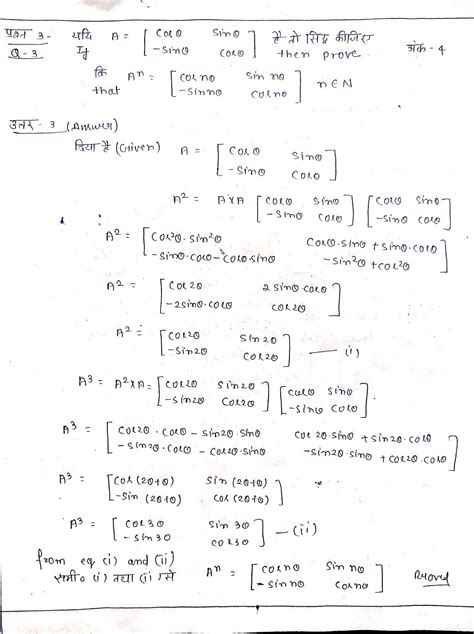 प्रश्न 3- यदि A = [ cosθ sinθ है तो सिद्ध कीजिए अंक - 4
Q-3 If -sinθ cosθ ] then prove
कि Aⁿ = [ cosnθ sin nθ
that -sinnθ cosnθ ] n∈N
उत्तर - 3 (Answer)
दिया है (Given) A = [ cosθ sinθ
-sinθ cosθ ]
A² = A×A [ cosθ sinθ ] [ cosθ sinθ
-sinθ cosθ ] [ -sinθ cosθ ]
A² = [ cos²θ-sin²θ cosθ.sinθ + sinθ.cosθ
-sinθ.cosθ-cosθ.sinθ -sin²θ+cos²θ ]
A² = [ cos2θ 2sinθ.cosθ
-2sinθ.cosθ cos2θ ]
A² = [ cos2θ sin2θ
-sin2θ cos2θ ] — (i)
A³ = A²×A = [ cos2θ sin2θ ] [ cosθ sinθ
-sin2θ cos2θ ] [ -sinθ cosθ ]
A³ = [ cos2θ.cosθ - sin2θ.sinθ cos2θ.sinθ + sin2θ.cosθ
-sin2θ.cosθ - cos2θ.sinθ -sin2θ.sinθ + cos2θ.cosθ ]
A³ = [ cos(2θ+θ) sin(2θ+θ)
-sin(2θ+θ) cos(2θ+θ) ]
A³ = [ cos3θ sin3θ
-sin3θ cos3θ ] — (ii)
from eq (i) and (ii)
समी० (i) तथा (ii) से Aⁿ = [ cosnθ sin nθ
-sin nθ cosnθ ] Proved